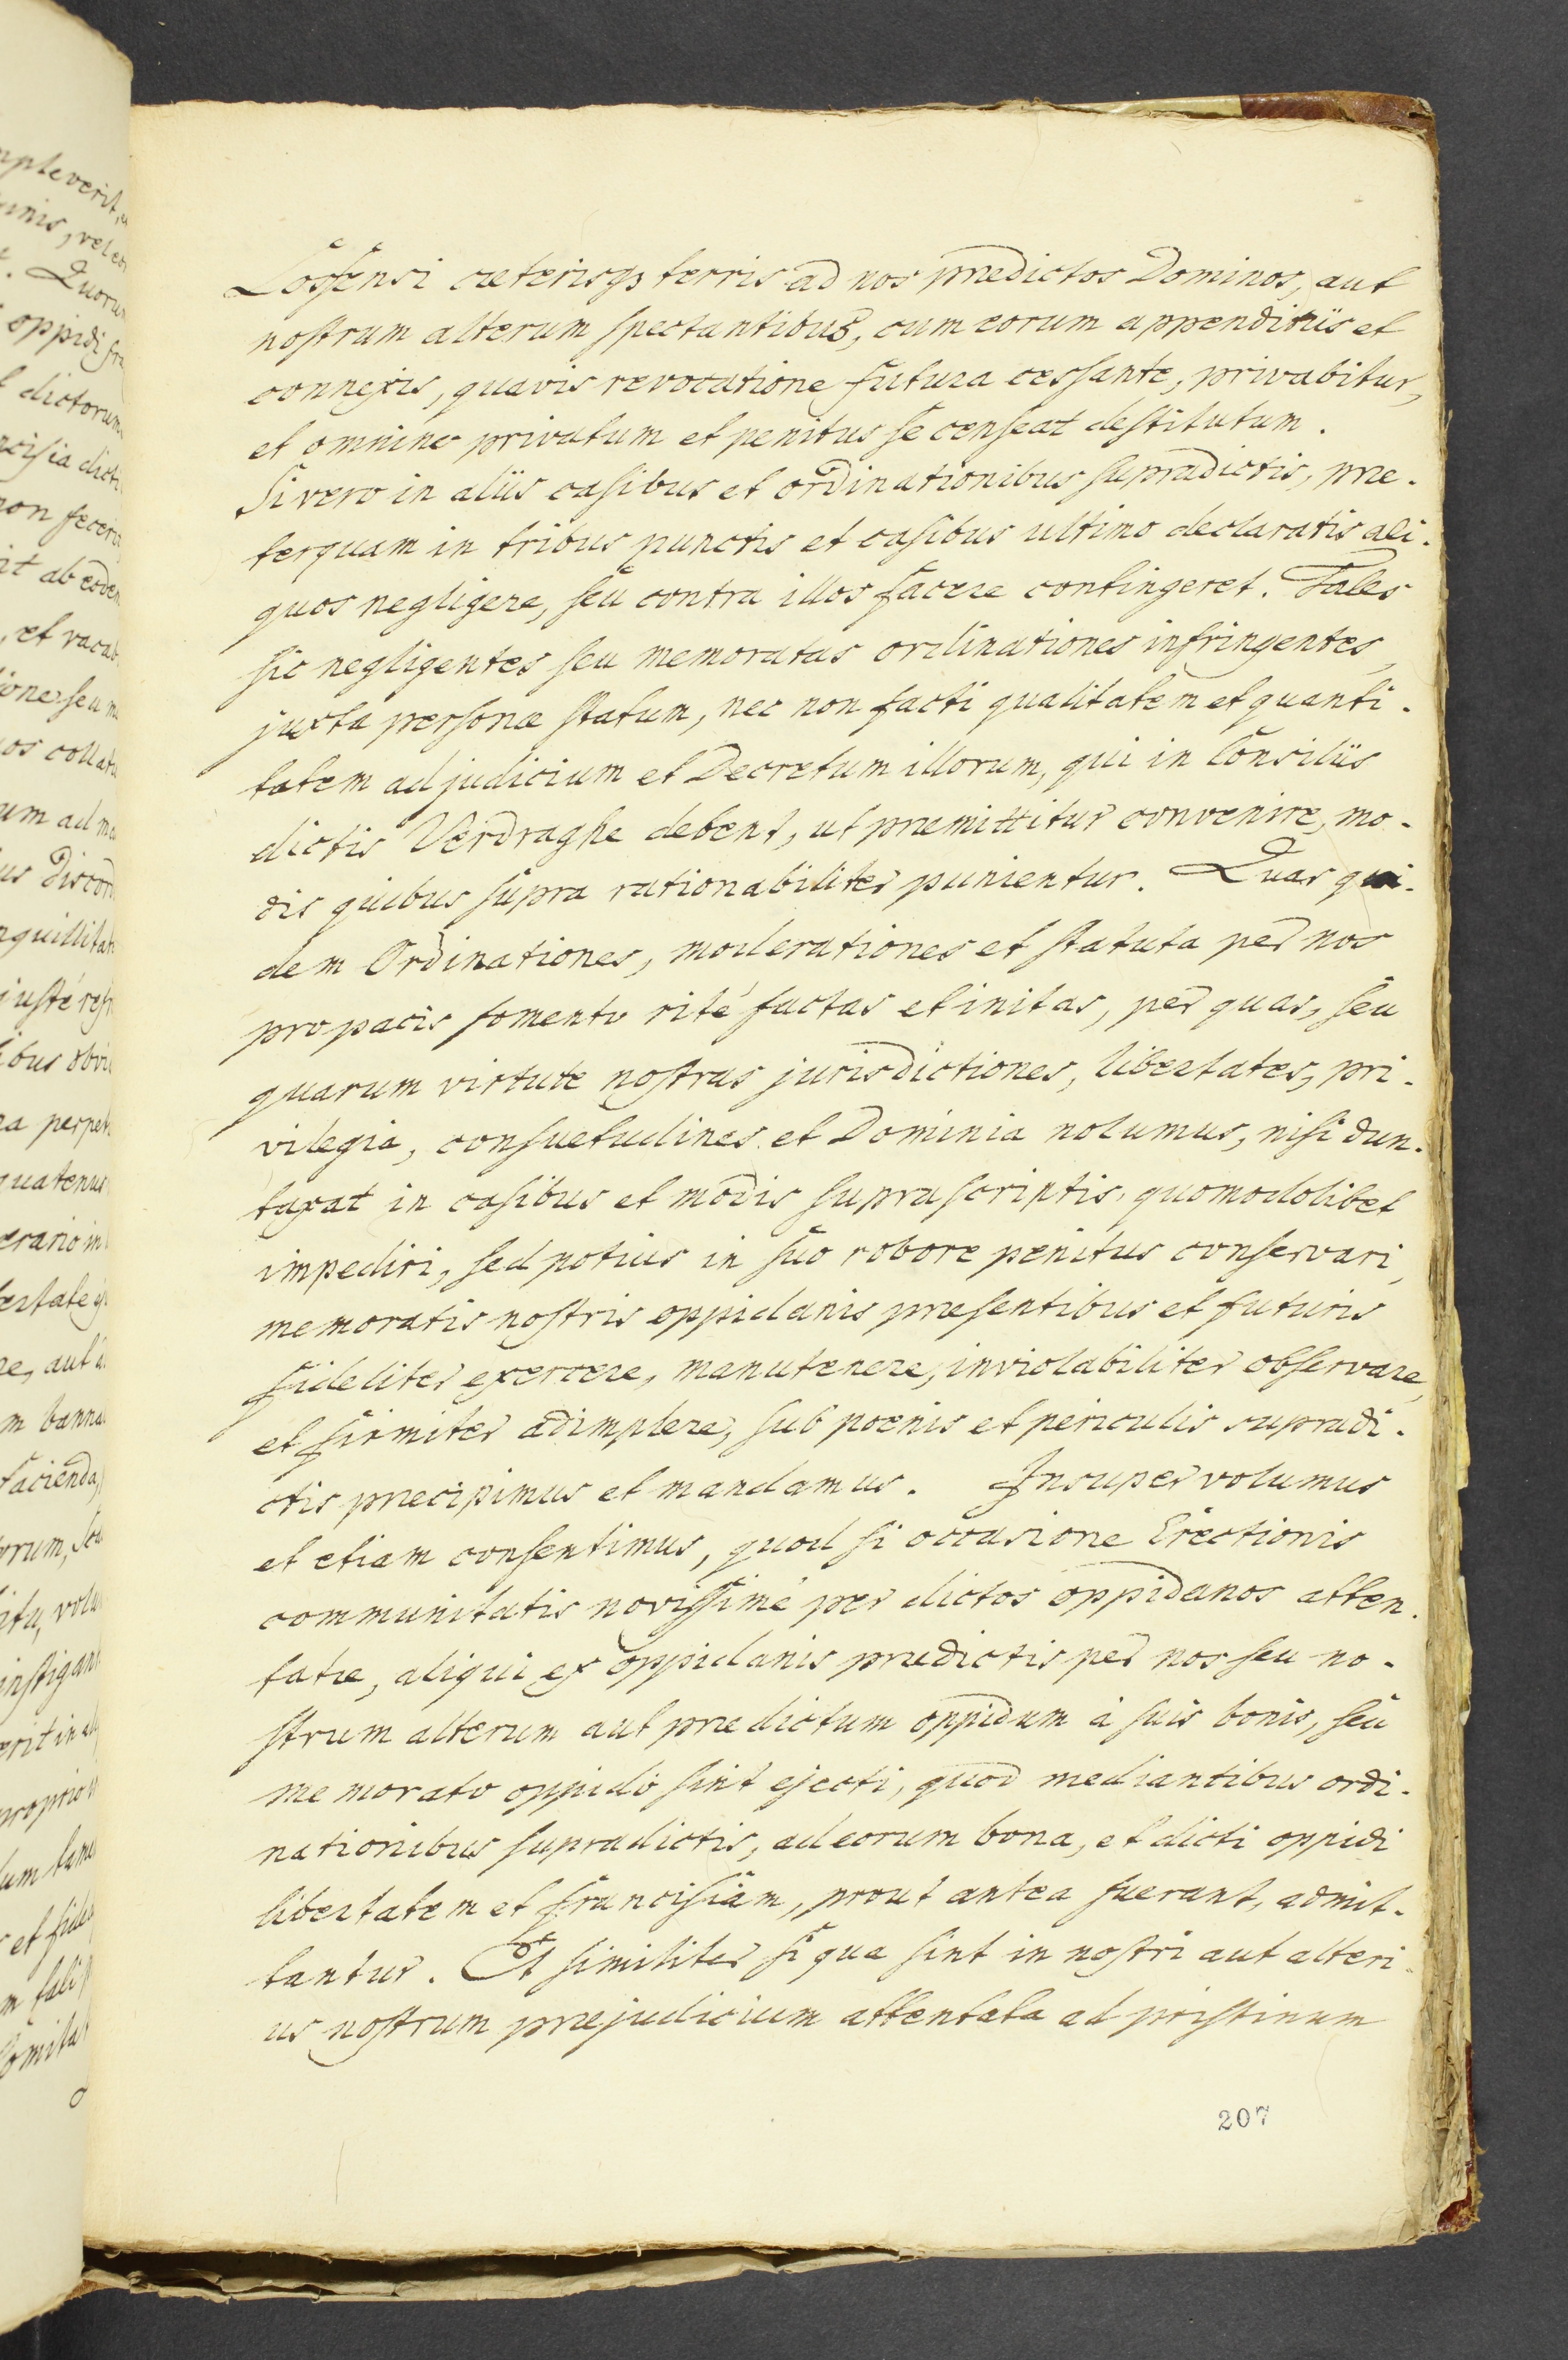 Lossensi cæterisqȝ terris ad nos prædictos Dominos, aut
nostrum alterum spectantibus, cum eorum appenditiis et
connexis, quavis revocatione futura cessante, privabitur,
et omnino privatum et penitus se censeat destitutum.
Si vero in aliis casibus et ordinationibus supradictis, præ-
terquam in tribus punctis et casibus ultimo declaratis ali-
quos negligere, seu contra illos facere contingeret. Tales
sic negligentes seu memoratas ordinationes infringentes,
juxta personæ statum, nec non facti qualitatem et quanti-
tatem ad judicium et Decretum illorum, qui in Consiliis
dictis Verdraghe debent, ut præmittitur convenire, mo-
dis quibus supra rationabiliter punientur. Quas qui-
dem Ordinationes, moderationes et statuta per nos
pro pacis fomento rité factas et initas, per quas, seu
quarum virtute nostras jurisdictiones, libertates, pri-
vilegia, consuetudines et Dominia nolumus, nisi dun-
taxat in casibus et modis suprascriptis, quomodolibet
impediri, sed potius in suo robore penitus conservari,
memoratis nostris oppidanis præsentibus et futuris
fideliter exercere, manutenere, inviolabiliter observare,
et firmiter adimplere, sub poenis et periculis supradi-
ctis præcipimus et mandamus. Insuper volumus
et etiam consentimus, quod si occasione Erectionis
communitatis novissimé per dictos oppidanos atten-
tatæ, aliqui ex oppidanis prædictis per nos seu no-
strum alterum aut prædictum oppidum à suis bonis, seu
memorato oppido sint ejecti, quod mediantibus ordi-
nationibus supradictis, ad eorum bona, et dicti oppidi
libertatem et francisiam, prout antea fuerant, admit-
tantur. Et similiter si qua sint in nostri aut alteri-
us nostrum præjudicium attentata ad pristinum
207